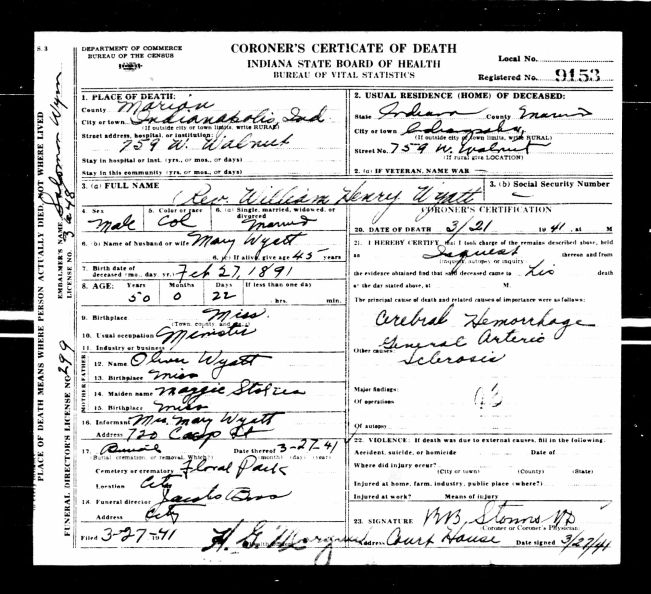 S. 3
DEPARTMENT OF COMMERCE
BUREAU OF THE CENSUS
CORONER'S CERTICATE OF DEATH
INDIANA STATE BOARD OF HEALTH
BUREAU OF VITAL STATISTICS
Local No.
Registered No. 9153
PLACE OF DEATH MEANS WHERE PERSON ACTUALLY DIED, NOT WHERE LIVED
EMBALMER'S NAME Solomon Wynn
LICENSE NO.
FUNERAL DIRECTOR'S LICENSE NO. 299
1. PLACE OF DEATH:
County Marion
City or town Indianapolis, Ind
(If outside city or town limits, write RURAL)
Street address, hospital, or institution:
759 W. Walnut
Stay in hospital or inst. (yrs., or mos., or days)
Stay in this community (yrs., or mos., or days)
2. USUAL RESIDENCE (HOME) OF DECEASED:
State Indiana County Marion
City or town
(If outside city or town limits, write RURAL)
Street No. 759 W. Walnut
(If rural give LOCATION)
2. (a) IF VETERAN, NAME WAR
3. (a) FULL NAME Rev. William Henry Wyatt
3. (b) Social Security Number
4. Sex Male
5. Color or race Col
6. (a) Single, married, widowed, or divorced Married
6. (b) Name of husband or wife Mary Wyatt
6. (c) If alive, give age 45 years
7. Birth date of deceased (mo., day, yr.) Feb 27, 1891
8. AGE: Years Months Days If less than one day
50 0 22 hrs. min.
9. Birthplace Miss.
(Town, county, and state)
10. Usual occupation Minister
11. Industry or business
FATHER
12. Name Oliver Wyatt
13. Birthplace Miss
MOTHER
14. Maiden name Maggie
15. Birthplace Miss
16. Informant Mrs. Mary Wyatt
Address 720 Camp St
17. Burial Date thereof 3-27-41
(Burial, cremation, or removal, Which?) (month) (day) (year)
Cemetery or crematory Floral Park
Location City
18. Funeral director Jacobs Bros
Address City
Filed 3-27-1941
CORONER'S CERTIFICATION
20. DATE OF DEATH 3/21 1941, at M
21. I HEREBY CERTIFY, that I took charge of the remains described above, held
an Inquest thereon and from
(inquiry, autopsy or inquiry)
the evidence obtained find that said deceased came to his death
at the date stated above, at M.
The principal cause of death and related causes of importance were as follows:
Cerebral Hemorrhage
General Arterio
Other causes: Sclerosis
Major findings:
Of operations
Of autopsy
22. VIOLENCE: If death was due to external causes, fill in the following.
Accident, suicide, or homicide Date of
Where did injury occur?
(City or town) (County) (State)
Injured at home, farm, industry, public place (where?)
Injured at work? Means of injury
23. SIGNATURE Storms MD
(Coroner or Coroner's Physician)
Address Court House Date signed 3/27/41